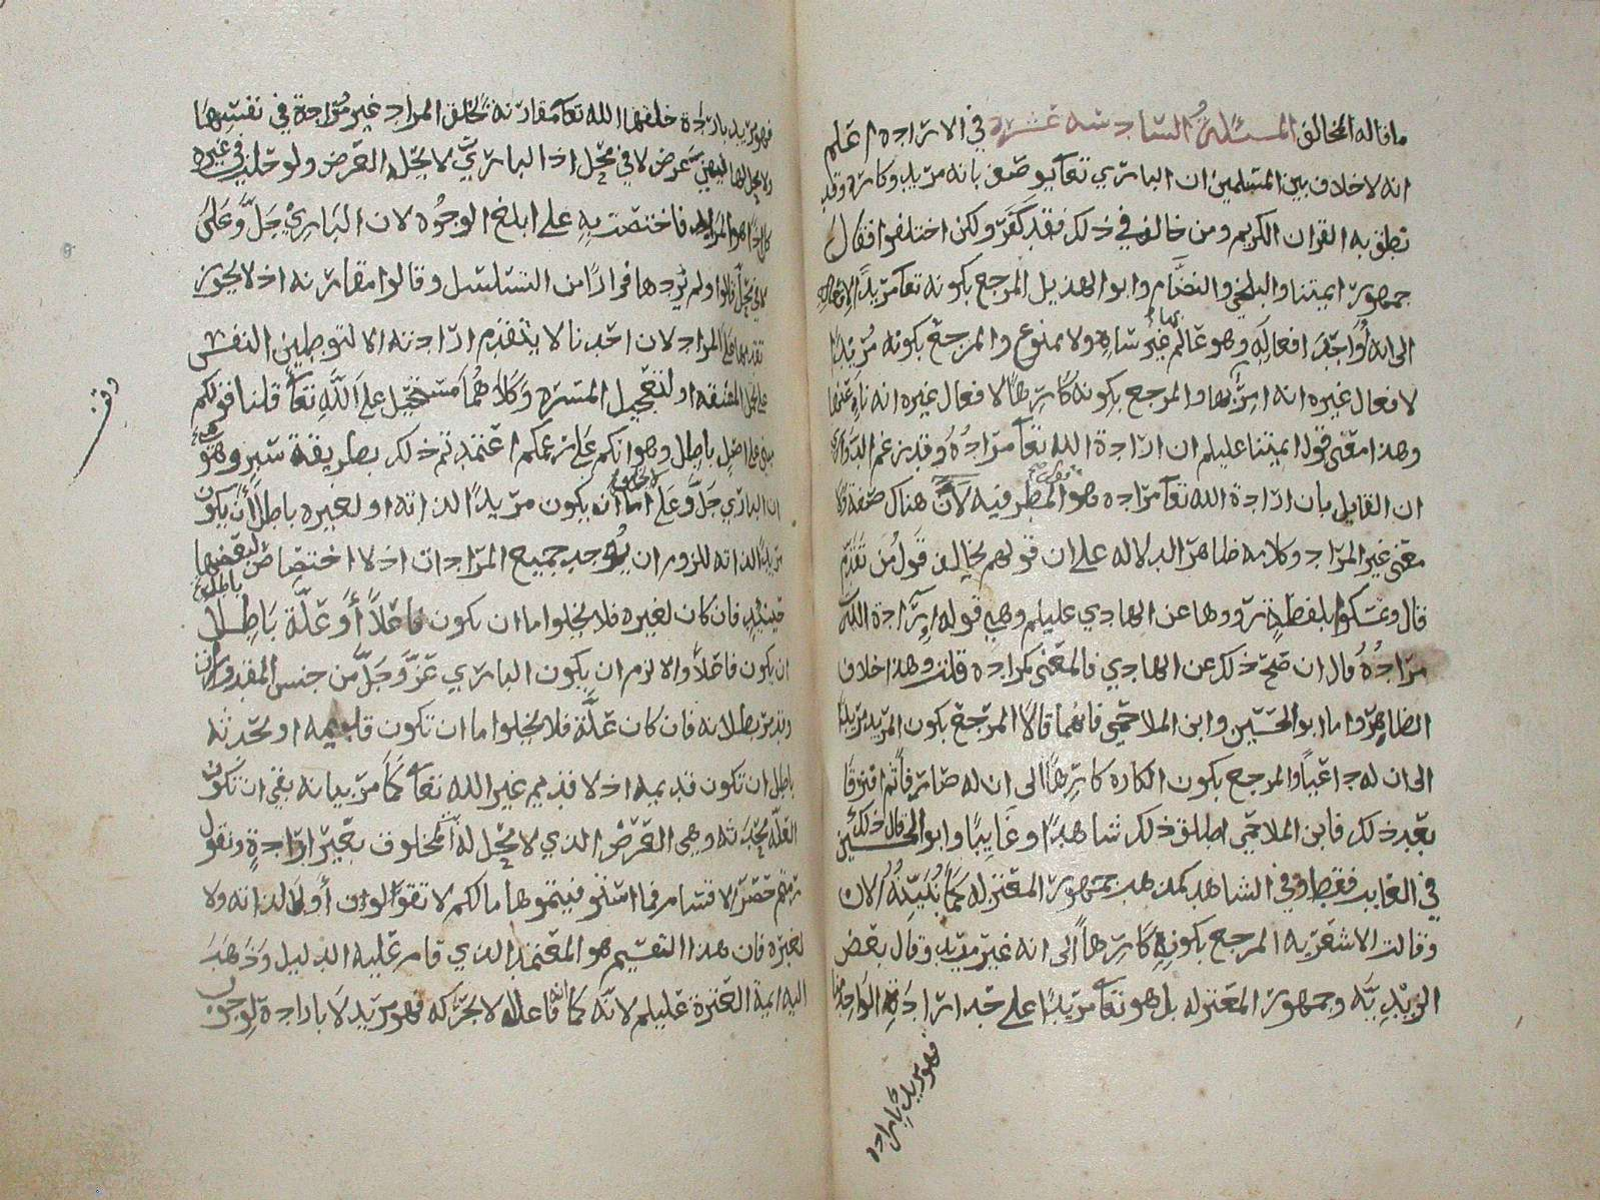 ما قاله المخالف المسئلة السادسة عشرة في الارادة اعلم
انه لا خلاف بين المسلمين ان الباري تعا يوصف بانه مريد وكاره وقد
نطق به القران الكريم ومن خالف في ذلك فقد كفر ولكن اختلفوا فقال
جمهور ايمتنا والبلخي والنظام وابو الهذيل المرجع بكونه تعا مريدا لافعاله
الى انه اوجد افعاله وهو عالم غير ساه ولا ممنوع والمرجع بكونه مريدا
لافعال غيره انه امر بها والمرجع بكونه كارها لافعال غيره انه ناه عنها
وهذا معنى قول ايمتنا عليلم ان ارادة الله تعا مراده وقد زعم الدواري
ان القايل بان ارادة الله تعا مراده هو المطرفيه لان هناك صفة ولا
معنى غير المراد وكلامه ظاهر الدلاله على ان قولهم يخالف قول من تقدم
قال وتمسكوا بلفظة رووها عن الهادي عليلم وهي قوله ارادة الله
مراده قال ان صح ذلك عن الهادي فالمعنى كمراده قلت وهذا خلاف
الظاهر واما ابو الحسين وابن الملاحمي فانهما قالا المرجع بكون المريد مريدا
الى ان له داعيا والمرجع بكون الكاره كارها الى ان له صارفا ثم افترقا
بعد ذلك فابن الملاحمي اطلق ذلك شاهدا وغايبا وابو الحسين قال ذلك
في الغايب فقط وفي الشاهد كمذهب جمهور المعتزله كما نبينه الان
وقالت الاشعريه المرجع بكونه كارها الى انه غير مريد وقال بعض
الزيديه وجمهور المعتزله بل هو تعا مريدا على حد ارادة الواحد منا
فهو مريد بارادة
فهو مريد بارادة خلقها الله تعا مقارنة لخلق المراد غير مرادة في نفسها
لا في محل اذ الباري لا يحله العرض ولو حلت في غيره
لكان هو المراد فاختصت به على ابلغ الوجوه لان الباري جل وعلى
لا في محل قالوا ولم يردها فرارا من التسلسل وقالوا مقارنه اذ لا يجوز
تقدمها على المراد لان احدنا لا يتقدم ارادته الا لتوطين النفس
على تحمل المشقه او لتعجيل المسره وكلاهما مستحيل على الله تعا قلنا قولكم
مبني على اصل باطل وهو انكم على زعمكم اعتمدتم ذلك بطريقة سبر وهو
ان الباري جل وعلى اما ان يكون مريدا لذاته او لغيره باطل ان يكون
مريدا لذاته للزوم ان يوجد جميع المرادات اذ لا اختصاص لبعضها
فان كان لغيره فلا يخلوا اما ان يكون فاعلا او علة باطل
ان يكون فاعلا والا لزم ان يكون الباري عز وجل من جنس المقدورات
وقد مر بطلانه فان كان علة فلا يخلوا اما ان تكون قديمه او محدثه
باطل ان تكون قديمه اذ لا قديم غير الله تعا كما مر بيانه بقي ان تكون
العلة محدثه وهي العرض الذي لا محل له المخلوق بغير ارادة ونقول
رمتم حصر الاقسام فما استوفيتموها ما لكم لا تقولوا او لا لذاته ولا
لغيره فان هذا التقسيم هو المعتمد الذي قام عليه الدليل وذهب
اليه ايمة العترة عليلم لانه كما انه فاعل لا بحركه فهو مريد لا بارادة لوجوب
وقف